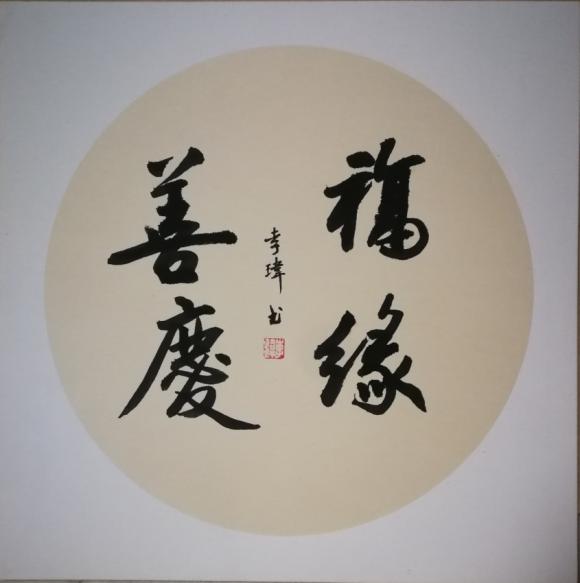 福缘
善慶
李瑋书